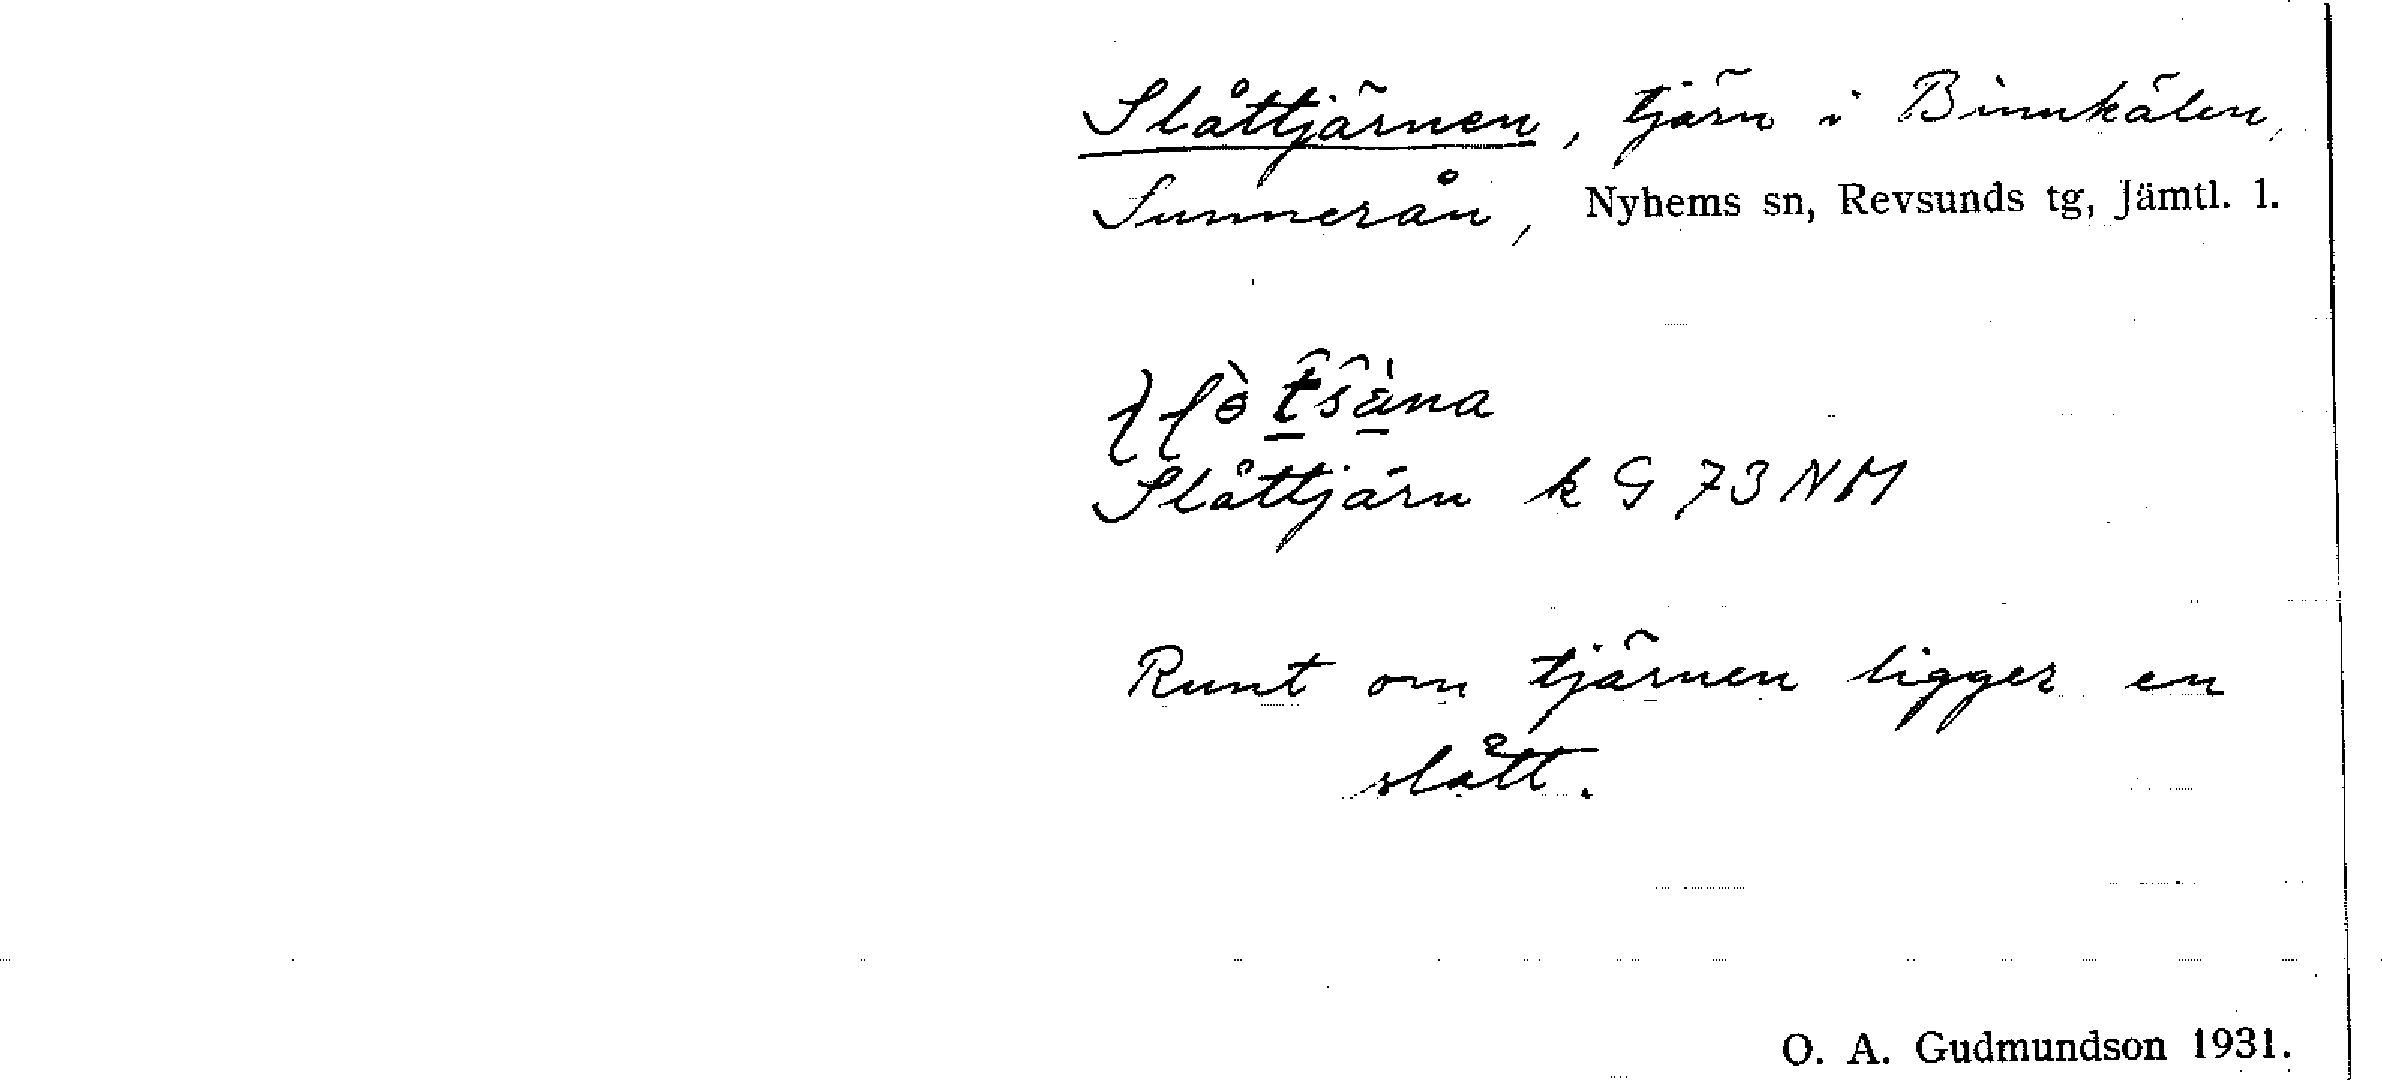 Slåttjärnen, tjärn i Binnkälen,
Sunnerån, Nyhems sn, Revsunds tg, Jämtl. l.
Slåttjärn k G 73 NM
Runt om tjärnen ligger en
slått.
O. A. Gudmundson 1931.